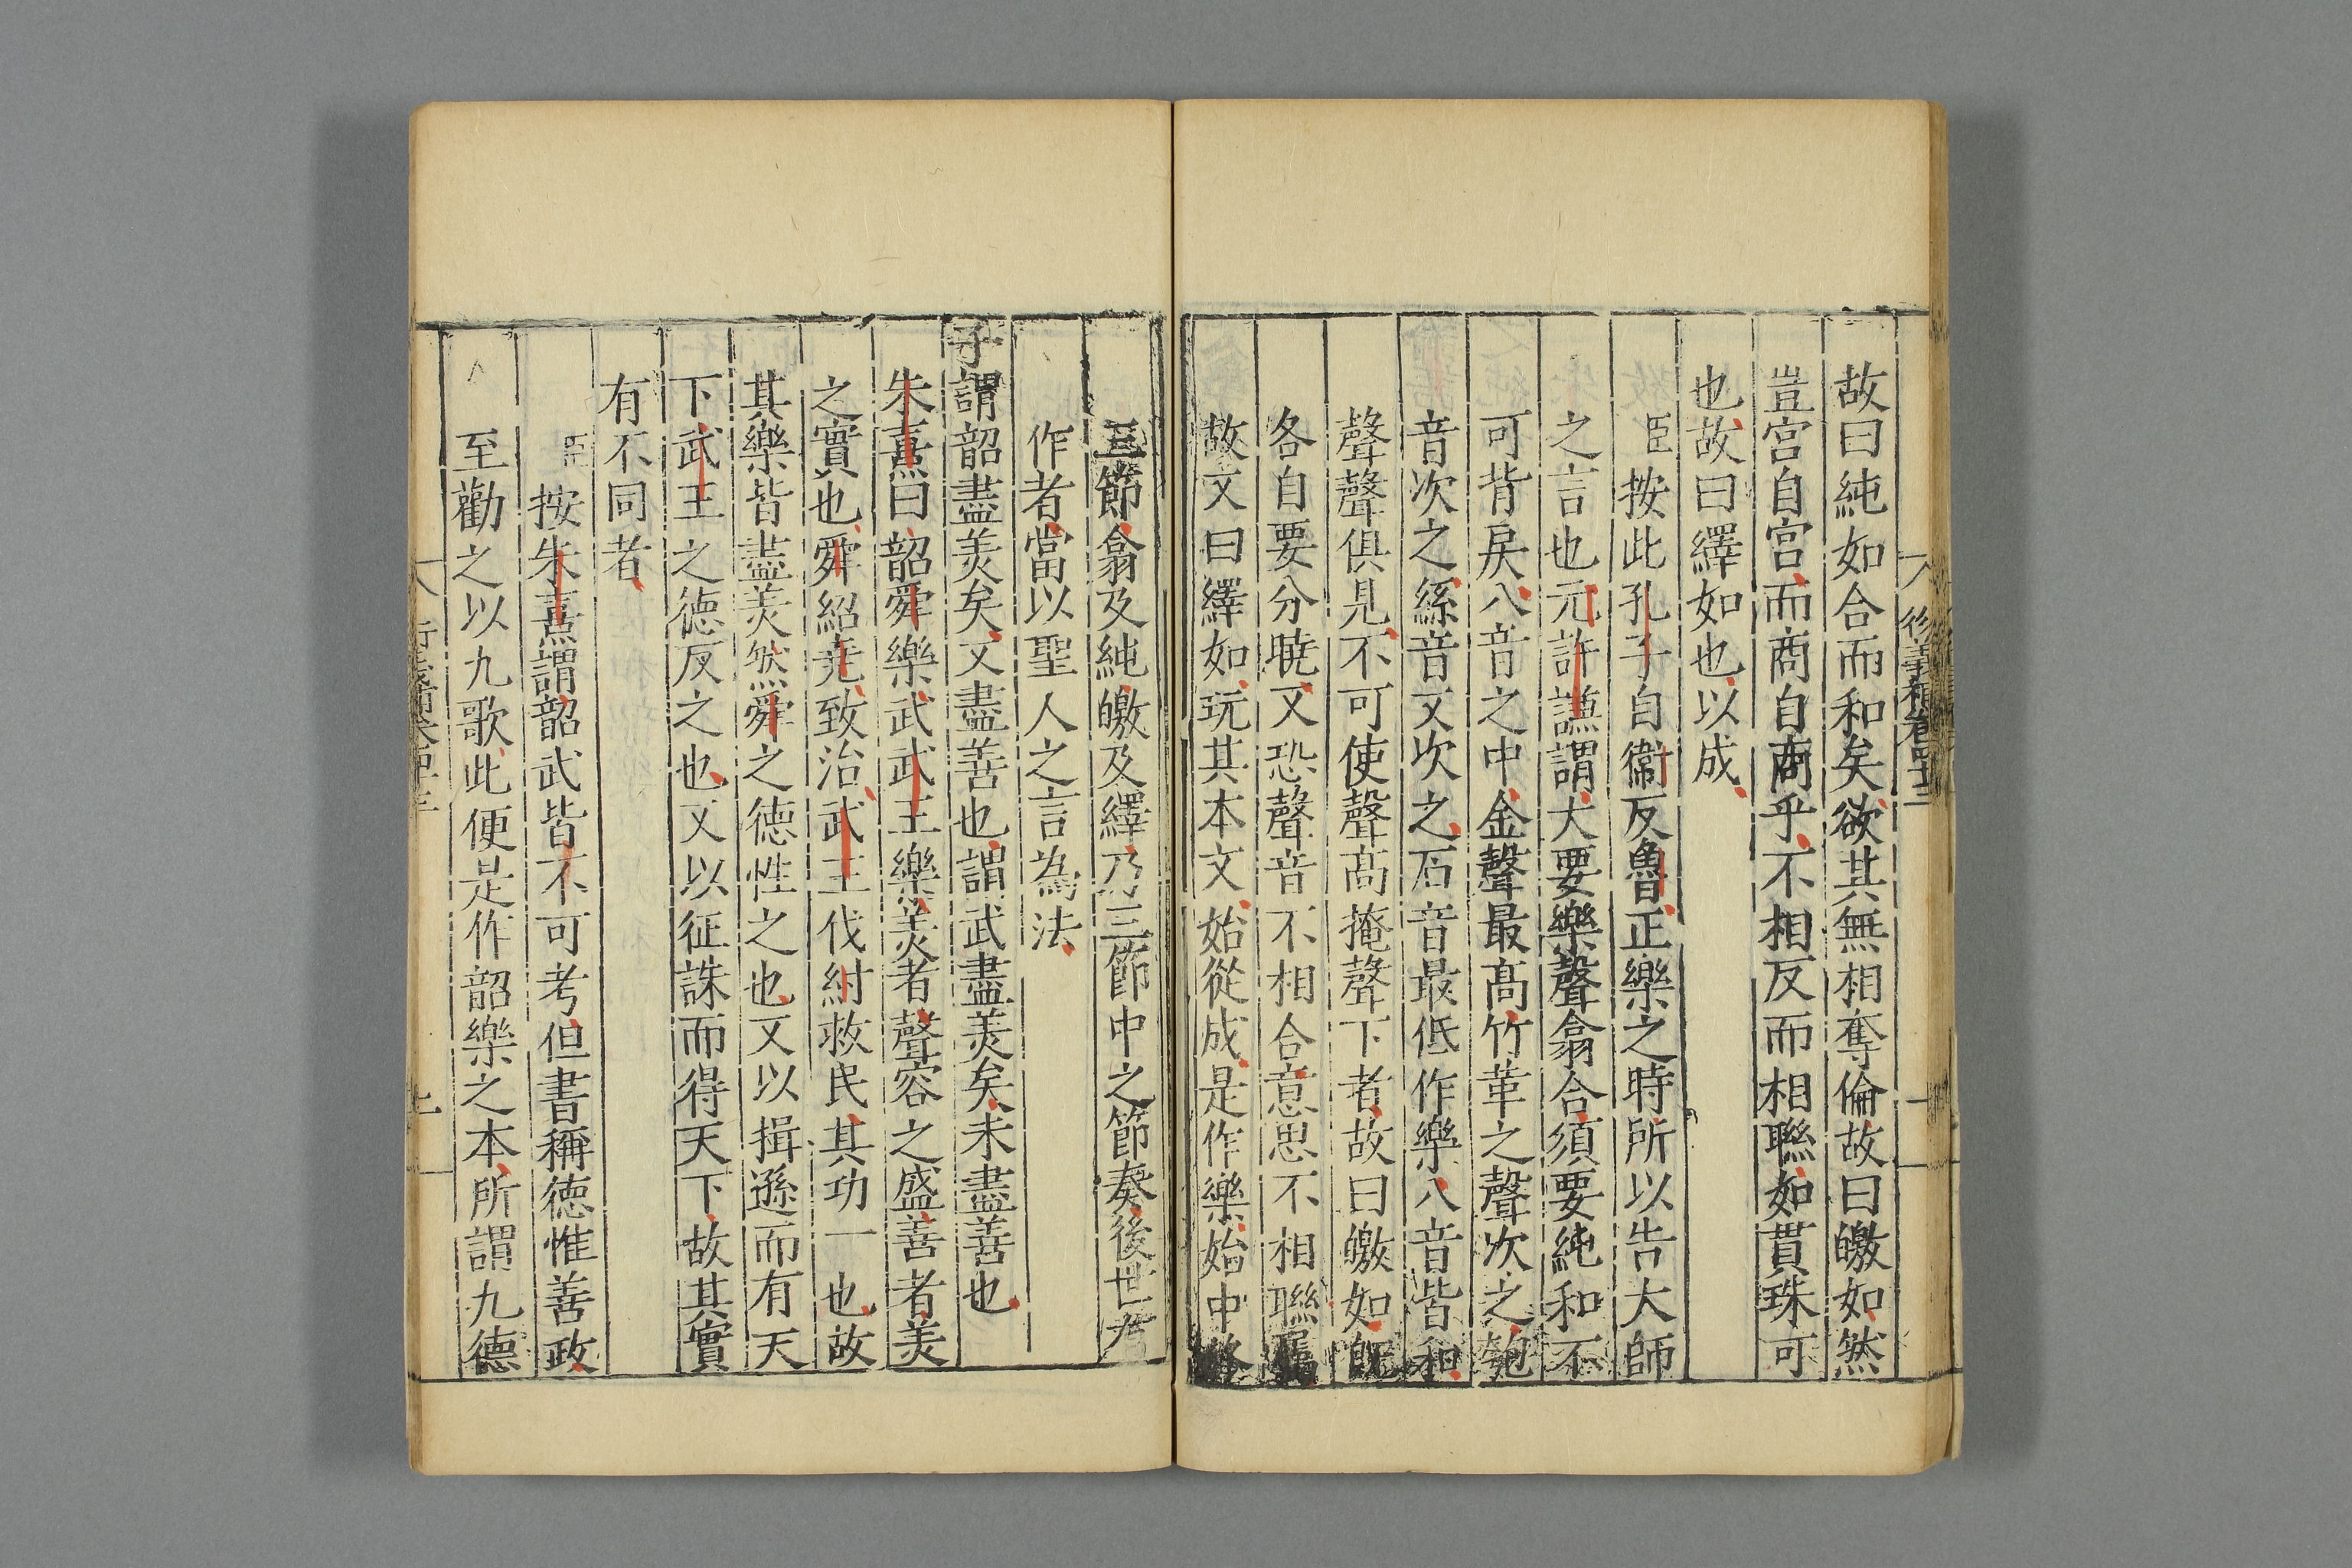 故曰純如合而和矣欲其無相奪倫故曰皦如然
豈宮自宮而商自商乎不相反而相聯如貫珠可
也故曰繹如也以成
臣按此孔子自衞反魯正樂之時所以告大師
之言也元許謙謂大要樂聲翕合須要純和不
可背戾八音之中金聲最高竹革之聲次之匏
音次之絲音又次之石音最低作樂八音皆和
聲聲俱見不可使聲高掩聲下者故曰皦如旣
各自要分曉又恐聲音不相合意思不相聯屬
故文曰繹如玩其本文始從成是作樂始中終
三節翕及純皦及繹乃三節中之節奏後世有
作者當以聖人之言為法
子謂韶盡美矣又盡善也謂武盡美矣未盡善也
朱熹曰韶舜樂武武王樂美者聲容之盛善者美
之實也舜紹堯致治武王伐紂救民其功一也故
其樂皆盡美然舜之德性之也又以揖遜而有天
下武王之德反之也又以征誅而得天下故其實
有不同者
臣按朱熹謂韶武皆不可考但書稱德惟善政
至勸之以九歌此便是作韶樂之本所謂九德